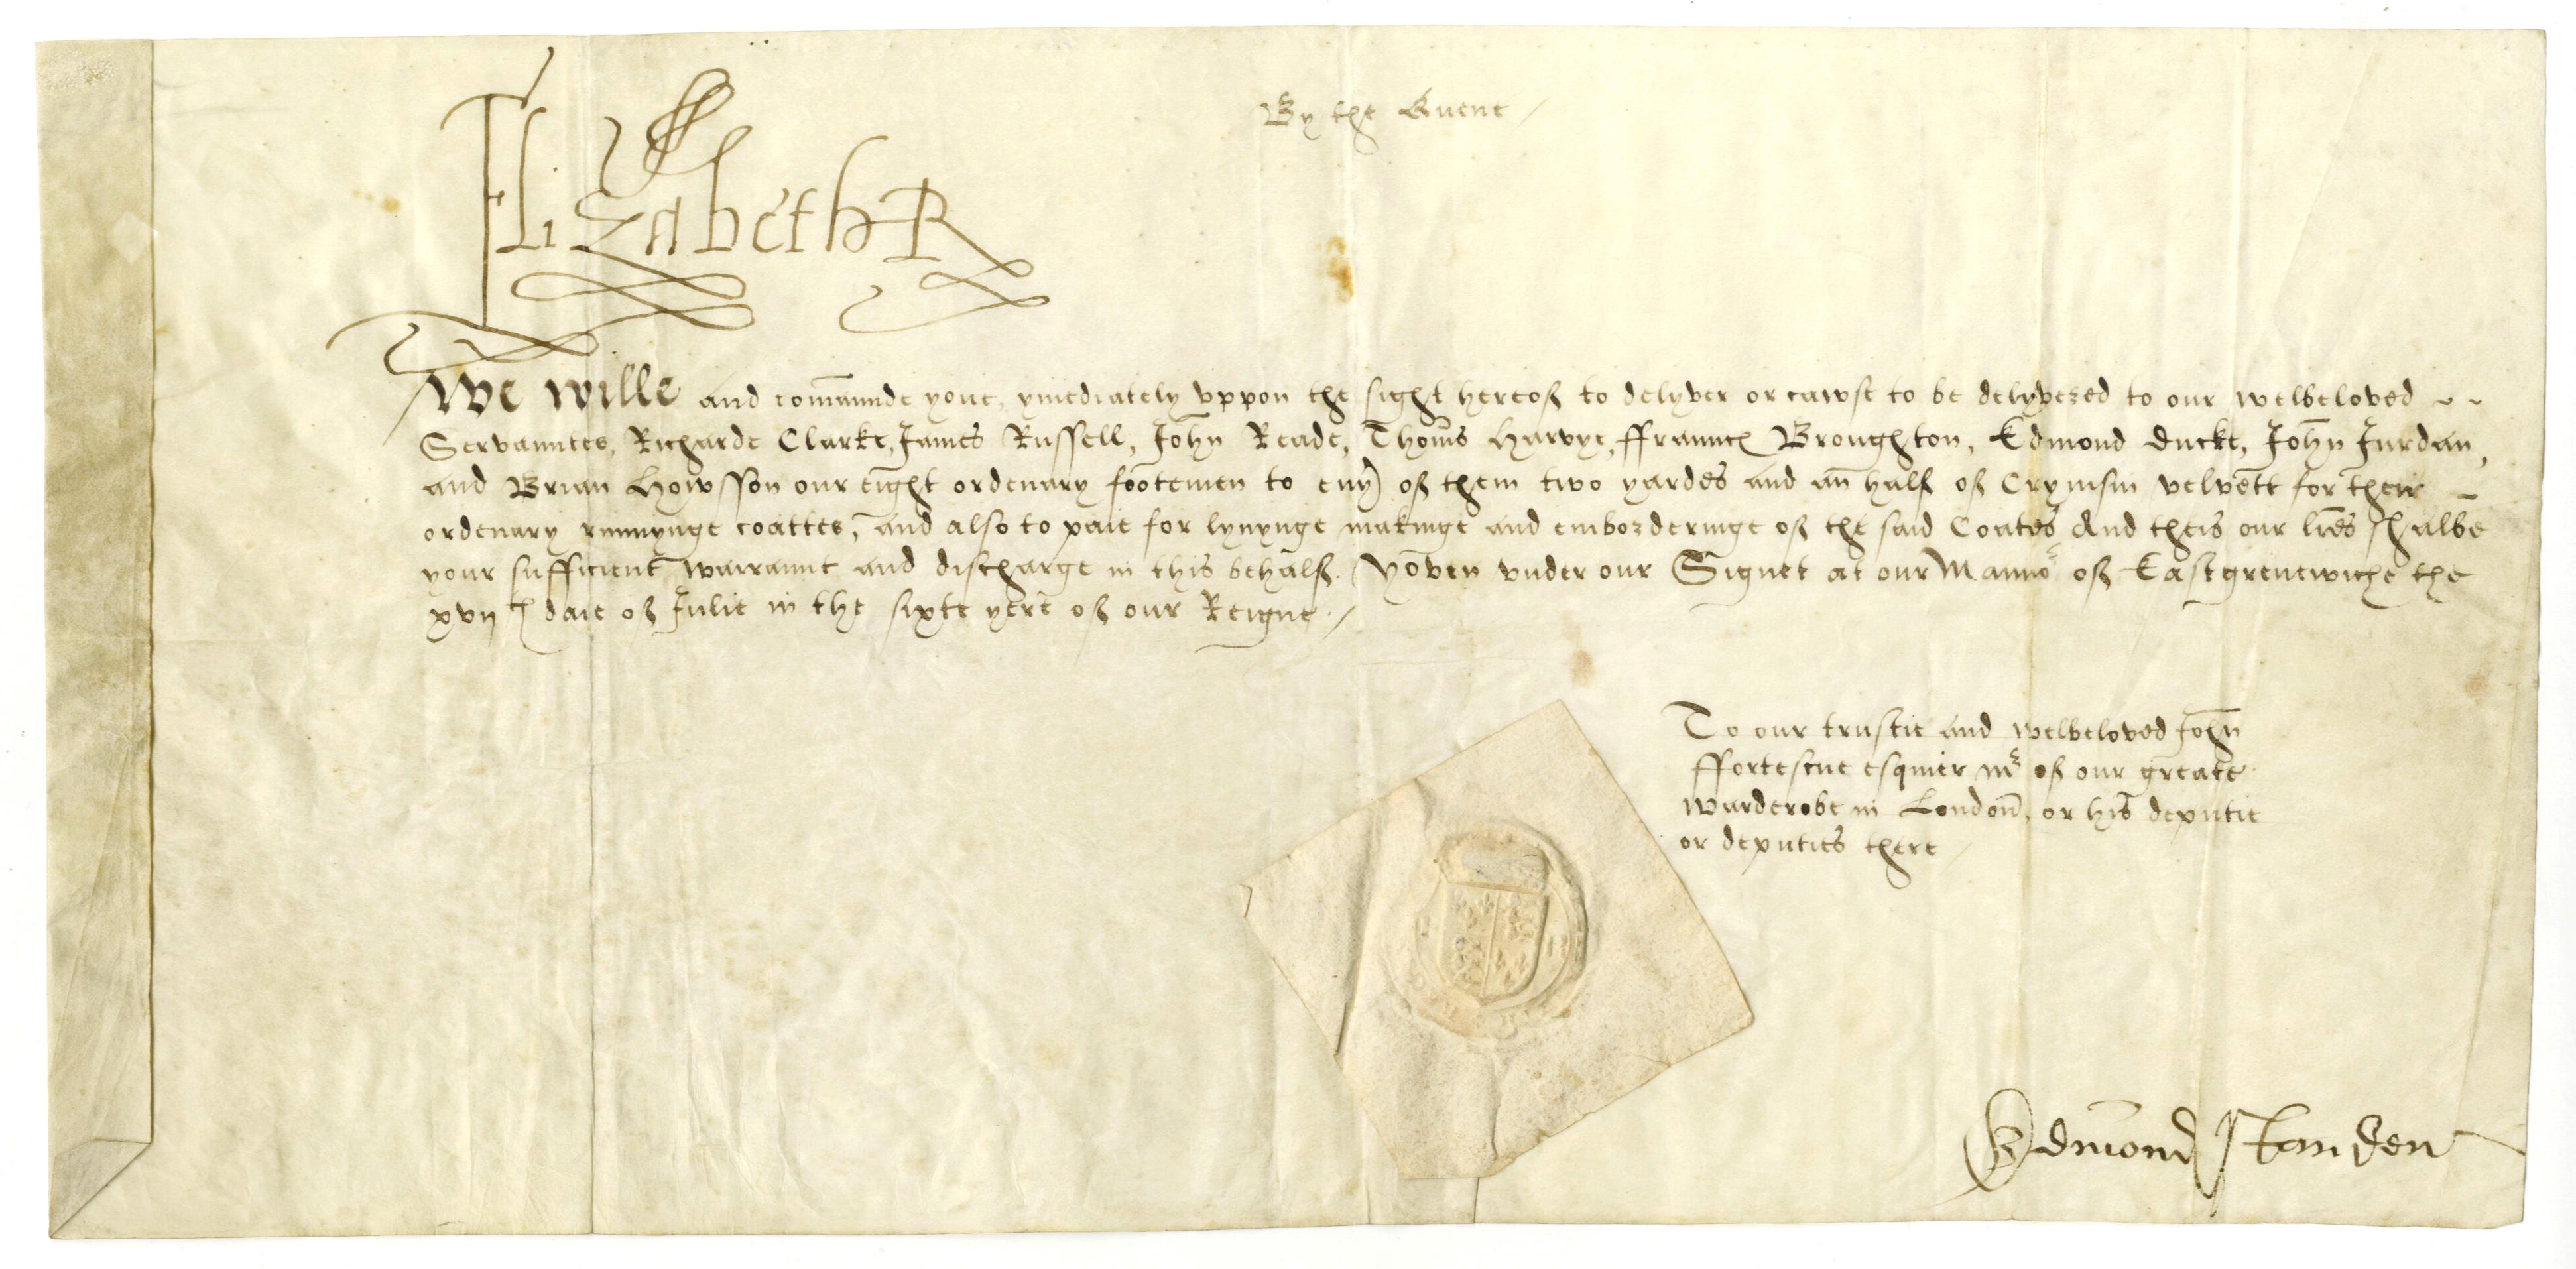 Elizabeth R
By the Quene
We wille and com̄aunde youe, ymediately vppon the sight hereof to delyver or cawse to be delyvered to our welbeloved
Servauntes, Richarde Clarke, James Russell, John Reade, Thom̄s Harvye, ffraunc Broughton, Edmond Ducke, John Jurdan,
and Brian Howsson our eight ordenary footemen to eny of them two yardes and an half of Crymsin velvett for their
ordenary runnynge coattes, and also to paie for lynynge makinge and emborderinge of the said Coates And theis our lr̄es shalbe
your sufficient warraunt and discharge in this behalf. Yoven vnder our Signet at our Manno͛ of Eastgrenewiche the
xvijth daie of Julie in the sixte yere of our Reigne./
To our trustie and welbeloved John
ffortescue esquier mr of our greate
warderobe in London, or his deputie
or deputies there
Edmond Standen